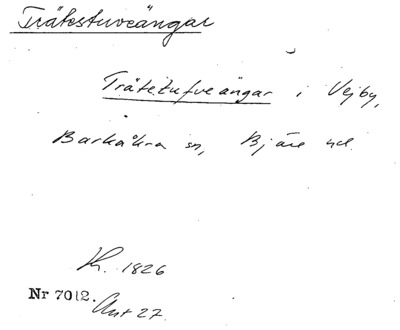 Trätestuveängar
Trätetufveängar i Vejby,
Barkåkra sn, Bjäre hd.
K. 1826
Nr 7012. Ant 27.